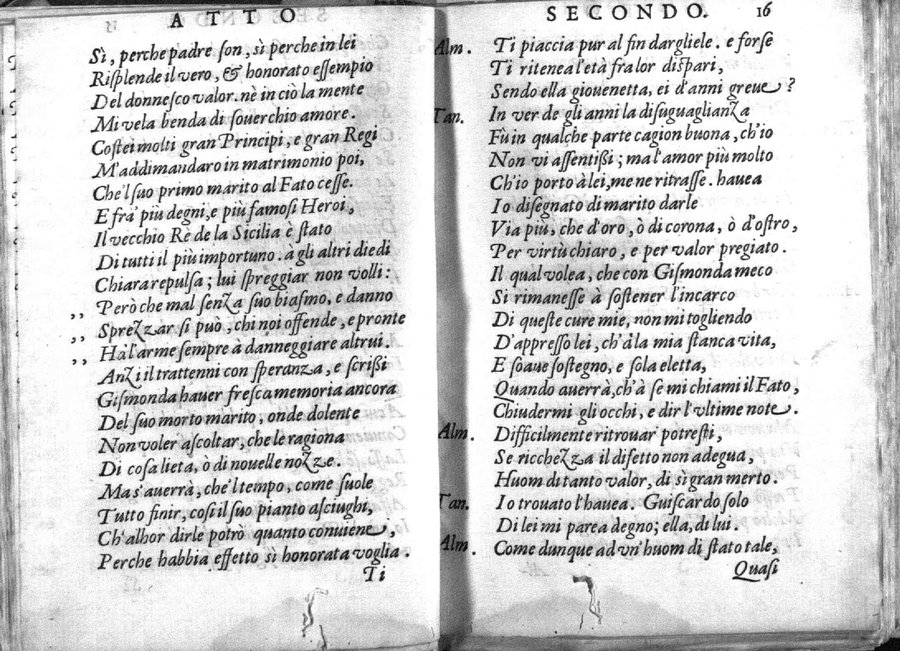 ATTO
Sì, perche padre son, sì perche in lei
Risplende il vero, & honorato essempio
Del donnesco valor. nè in ciò la mente
Mi vela benda di souerchio amore.
Costei molti gran Principi, e gran Regi
M'addimandaro in matrimonio poi,
Che'l suo primo marito al Fato cesse.
E fra' più degni, e più famosi Heroi,
Il vecchio Rè de la Sicilia è stato
Di tutti il più importuno. à gli altri diedi
Chiara repulsa; lui spreggiar non volli:
,, Però che mal senza suo biasmo, e danno
,, Sprezzar si può, chi noi offende, e pronte
,, Hà l'arme sempre à danneggiare altrui.
Anzi il trattenni con speranza, e scrissi
Gismonda hauer fresca memoria ancora
Del suo morto marito, onde dolente
Non voler ascoltar, che le ragiona
Di cosa lieta, ò di nouelle nozze.
Ma s'auerrà, che'l tempo, come suole
Tutto finir, così il suo pianto asciughi,
Ch'alhor dirle potrò quanto conuiene,
Perche habbia effetto sì honorata voglia.
Ti
SECONDO. 16
Alm. Ti piaccia pur al fin dargliele. e forse
Ti ritenea l'età fra lor dispari,
Sendo ella giouenetta, ei d'anni greue?
Tan. In ver de gli anni la disuguaglianza
Fù in qualche parte cagion buona, ch'io
Non vi assentissi; ma l'amor più molto
Ch'io porto à lei, me ne ritrasse. hauea
Io disegnato di marito darle
Via più, che d'oro, ò di corona, ò d'ostro,
Per virtù chiaro, e per valor pregiato.
Il qual volea, che con Gismonda meco
Si rimanesse à sostener l'incarco
Di queste cure mie, non mi togliendo
D'appresso lei, ch'à la mia stanca vita,
E soaue sostegno, e sola eletta,
Quando auerrà, ch'à se mi chiami il Fato,
Chiudermi gli occhi, e dir l'vltime note.
Alm. Difficilmente ritrouar potresti,
Se ricchezza il difetto non adegua,
Huom di tanto valor, di sì gran merto.
Tan. Io trouato l'hauea. Guiscardo solo
Di lei mi parea degno; ella, di lui.
Alm. Come dunque ad vn'huom di stato tale,
Quasi